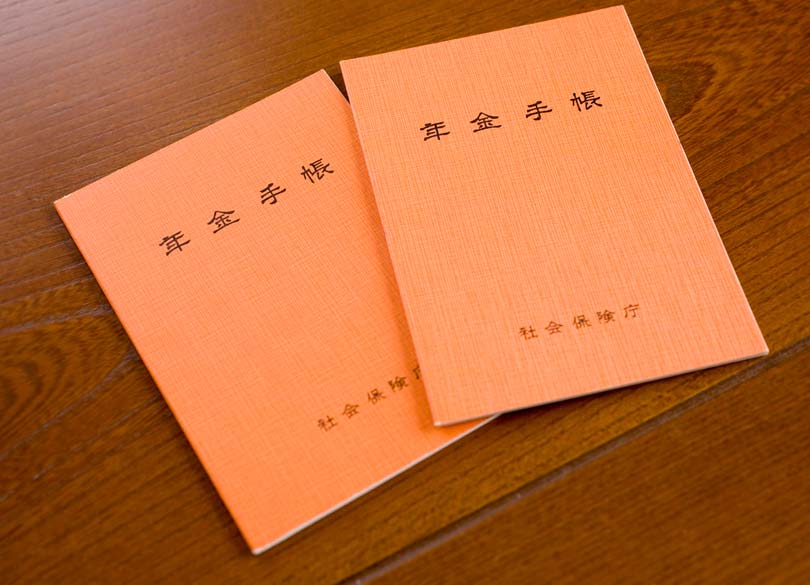 年金手帳
社会保険庁
年金手帳
社会保険庁